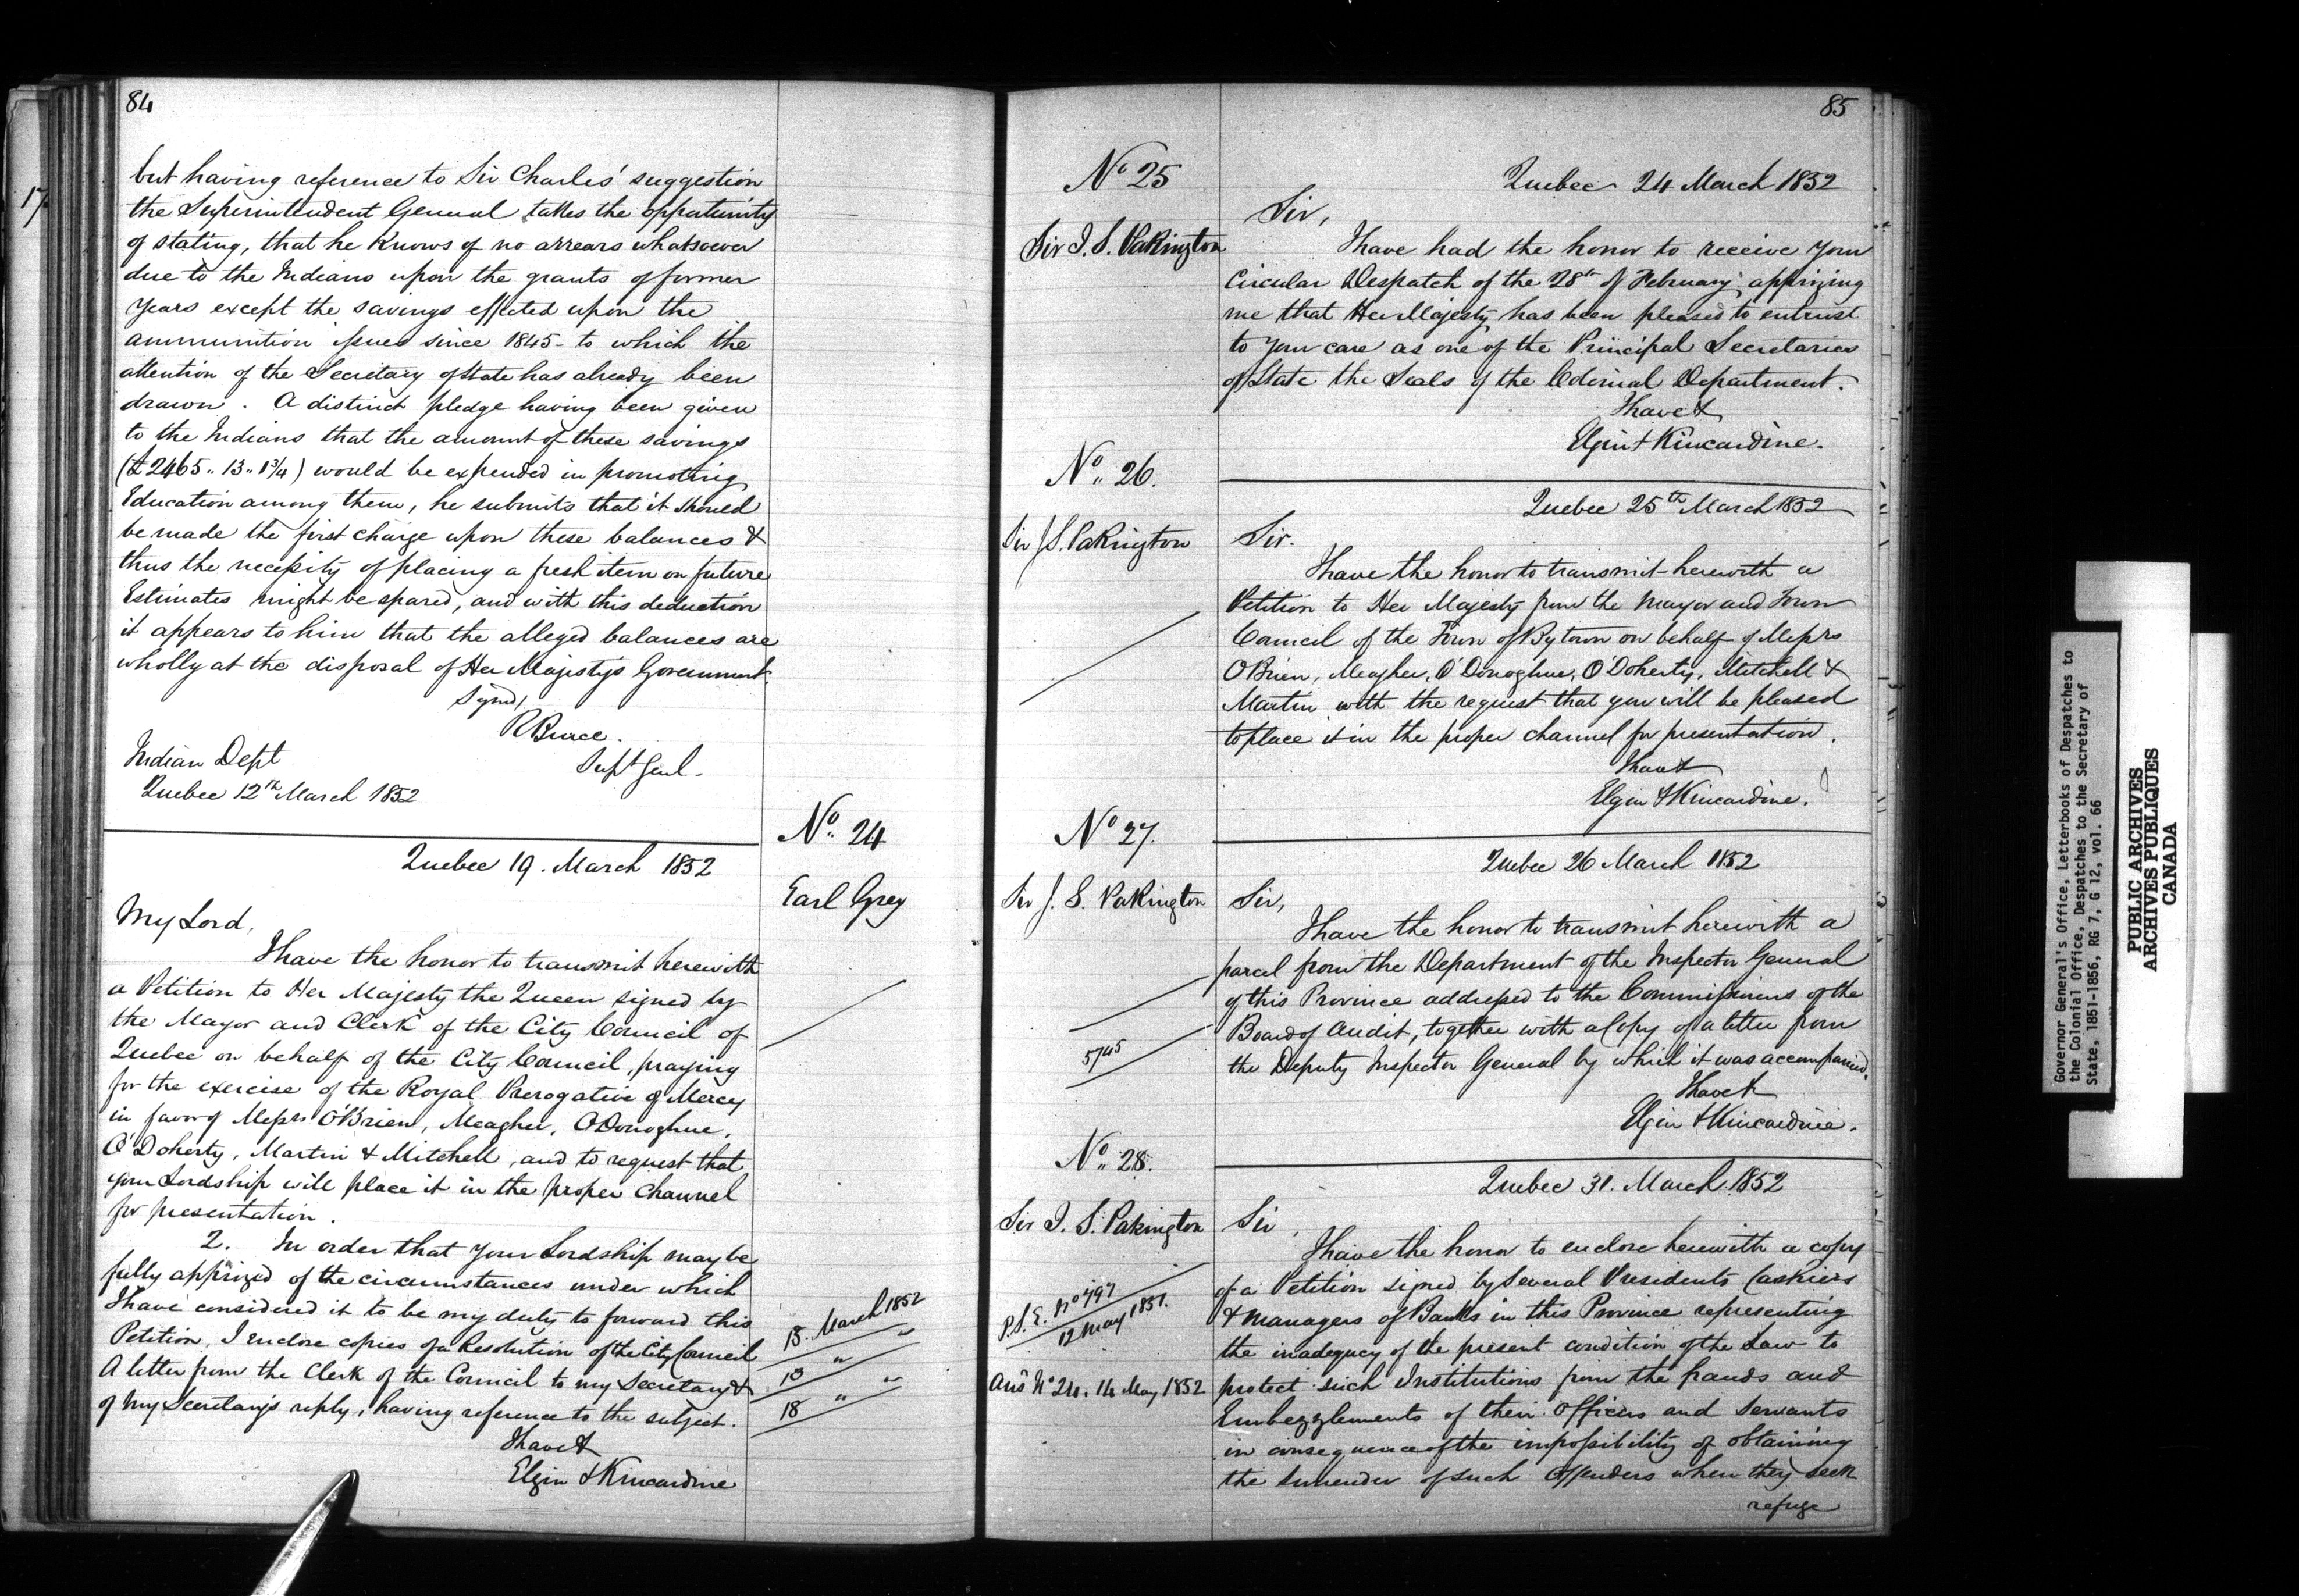 84
but having reference to Sir Charles' suggestion
the Superintendent General takes the opportunity
of stating, that he knows of no arrears whatsoever
due to the Indians upon the grants of former
years except the savings effected upon the
ammunition issues since 1845 - to which the
attention of the Secretary of State has already been
drawn. A distinct pledge having been given
to the Indians that the amount of these savings
(£2465.. 13.. 1¾) would be expended in promoting
Education among them, he submits that it should
be made the first charge upon these balances &
thus the necessity of placing a fresh item on future
Estimates might be spared, and with this deduction
it appears to him that the alleged balances are
wholly at the disposal of Her Majesty's Government.
Signd,
R Bruce.
Supt Genl.
Indian Dept
Quebec 12th March 1852
No. 24
Earl Grey
Quebec 19. March 1852
My Lord,
I have the honor to transmit herewith
a Petition to Her Majesty the Queen signed by
the Mayor and Clerk of the City Council of
Quebec on behalf of the City Council, praying
for the exercise of the Royal Prerogative of Mercy
in favor of Messrs O'Brien, Meagher, O'Donoghue,
O'Doherty, Martin & Mitchell, and to request that
your Lordship will place it in the proper channel
for presentation.
2. In order that your Lordship may be
fully apprized of the circumstances under which
I have considered it to be my duty to forward this
Petition, I enclose copies of a Resolution of the City Council
A letter from the Clerk of the Council to my Secretary &
of my Secretary's reply, having reference to the subject.
15. March 1852
" "
18 " "
I have &
Elgin & Kincardine
85
No 25
Sir J. S. Pakington
Quebec 24 March 1852
Sir,
I have had the honor to receive your
Circular Despatch of the 28th of February apprizing
me that Her Majesty has been pleased to entrust
to your care as one of the Principal Secretaries
of State the Seals of the Colonial Department.
I have &
Elgin & Kincardine.
No. 26.
Sir J. S. Pakington
Quebec 25th March 1852
Sir.
I have the honor to transmit herewith a
Petition to Her Majesty from the Mayor and Town
Council of the Town of Bytown on behalf of Messrs
O'Brien, Meagher, O'Donoghue, O'Doherty, Mitchell &
Martin with the request that you will be pleased
to place it in the proper channel for presentation.
I have &
Elgin & Kincardine.
No 27.
Sir J. S. Pakington
5745
Quebec 26 March 1852
Sir,
I have the honor to transmit herewith a
parcel from the Department of the Inspector General
of this Province addressed to the Commissioners of the
Board of Audit, together with a Copy of a letter from
the Deputy Inspector General by which it was accompanied.
I have &
Elgin & Kincardine.
No. 28.
Sir J. S. Pakington
P.S.E. No 497
12 May 1851.
Ansd No 24. 14 May 1852
Quebec 31. March 1852
Sir,
I have the honor to enclose herewith a copy
of a Petition signed by Several Presidents Cashiers
& managers of Banks in this Province representing
the inadequacy of the present condition of the Law to
protect such Institutions from the frauds and
Embezzlements of their Officers and Servants
in consequence of the impossibility of obtaining
the surrender of such Offenders when they seek
refuge
Governor General's Office, Letterbooks of Despatches to
the Colonial Office, Despatches to the Secretary of
State, 1851-1856, RG 7, G 12, vol. 66
PUBLIC ARCHIVES
ARCHIVES PUBLIQUES
CANADA